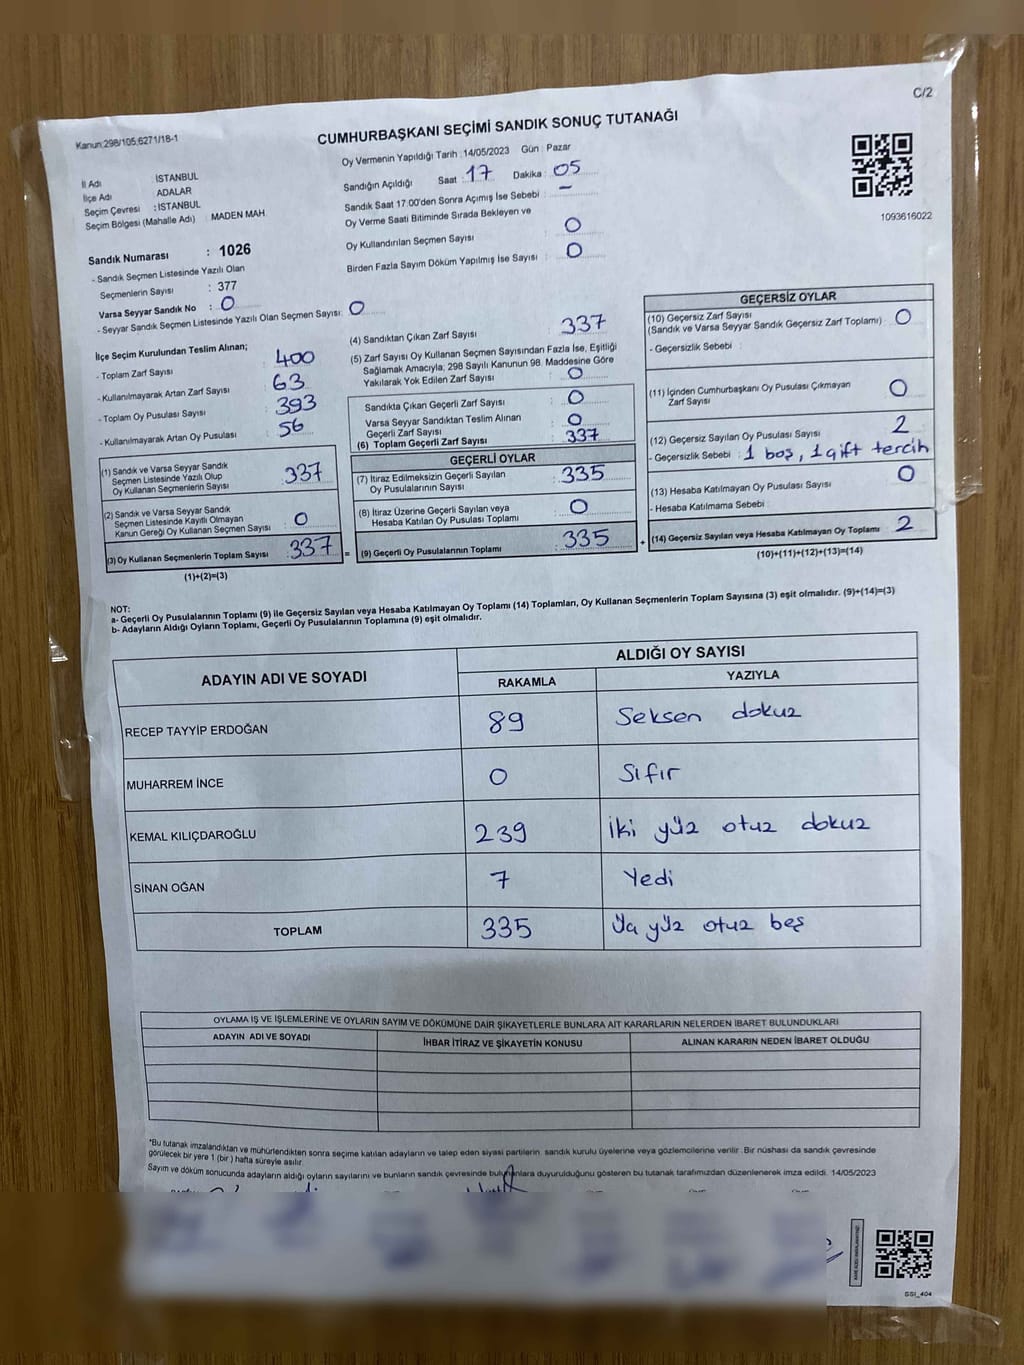 C/2
Kanun:298/105;6271/18-1
CUMHURBAŞKANI SEÇİMİ SANDIK SONUÇ TUTANAĞI
İl Adı İSTANBUL
İlçe Adı ADALAR
Seçim Çevresi : İSTANBUL
Seçim Bölgesi (Mahalle Adı) MADEN MAH.
Oy Vermenin Yapıldığı Tarih : 14/05/2023 Gün : Pazar
Sandığın Açıldığı Saat : 17 Dakika : 05
Sandık Saat 17:00'den Sonra Açımış İse Sebebi : –
Oy Verme Saati Bitiminde Sırada Bekleyen ve
Oy Kullandırılan Seçmen Sayısı : 0
Birden Fazla Sayım Döküm Yapılmış İse Sayısı : 0
1093616022
Sandık Numarası : 1026
- Sandık Seçmen Listesinde Yazılı Olan
Seçmenlerin Sayısı : 377
Varsa Seyyar Sandık No : 0
- Seyyar Sandık Seçmen Listesinde Yazılı Olan Seçmen Sayısı: 0
İlçe Seçim Kurulundan Teslim Alınan;
- Toplam Zarf Sayısı : 400
- Kullanılmayarak Artan Zarf Sayısı : 63
- Toplam Oy Pusulası Sayısı : 393
- Kullanılmayarak Artan Oy Pusulası : 56
(1) Sandık ve Varsa Seyyar Sandık
Seçmen Listesinde Yazılı Olup
Oy Kullanan Seçmenlerin Sayısı : 337
(2) Sandık ve Varsa Seyyar Sandık
Seçmen Listesinde Kayıtlı Olmayan
Kanun Gereği Oy Kullanan Seçmen Sayısı : 0
(3) Oy Kullanan Seçmenlerin Toplam Sayısı : 337 =
(1)+(2)=(3)
(4) Sandıktan Çıkan Zarf Sayısı : 337
(5) Zarf Sayısı Oy Kullanan Seçmen Sayısından Fazla İse, Eşitliği
Sağlamak Amacıyla; 298 Sayılı Kanunun 98. Maddesine Göre
Yakılarak Yok Edilen Zarf Sayısı : 0
Sandıkta Çıkan Geçerli Zarf Sayısı : 0
Varsa Seyyar Sandıktan Teslim Alınan
Geçerli Zarf Sayısı : 0
(6) Toplam Geçerli Zarf Sayısı : 337
GEÇERLİ OYLAR
(7) İtiraz Edilmeksizin Geçerli Sayılan
Oy Pusulalarının Sayısı : 335
(8) İtiraz Üzerine Geçerli Sayılan veya
Hesaba Katılan Oy Pusulası Toplamı : 0
(9) Geçerli Oy Pusulalarının Toplamı : 335 +
GEÇERSİZ OYLAR
(10) Geçersiz Zarf Sayısı
(Sandık ve Varsa Seyyar Sandık Geçersiz Zarf Toplamı) : 0
- Geçersizlik Sebebi :
(11) İçinden Cumhurbaşkanı Oy Pusulası Çıkmayan
Zarf Sayısı : 0
(12) Geçersiz Sayılan Oy Pusulası Sayısı : 2
- Geçersizlik Sebebi : 1 boş, 1 çift tercih
(13) Hesaba Katılmayan Oy Pusulası Sayısı : 0
- Hesaba Katılmama Sebebi
(14) Geçersiz Sayılan veya Hesaba Katılmayan Oy Toplamı : 2
(10)+(11)+(12)+(13)=(14)
NOT:
a- Geçerli Oy Pusulalarının Toplamı (9) ile Geçersiz Sayılan veya Hesaba Katılmayan Oy Toplamı (14) Toplamları, Oy Kullanan Seçmenlerin Toplam Sayısına (3) eşit olmalıdır. (9)+(14)=(3)
b- Adayların Aldığı Oyların Toplamı, Geçerli Oy Pusulalarının Toplamına (9) eşit olmalıdır.
ADAYIN ADI VE SOYADI
ALDIĞI OY SAYISI
RAKAMLA YAZIYLA
RECEP TAYYİP ERDOĞAN 89 Seksen dokuz
MUHARREM İNCE 0 Sıfır
KEMAL KILIÇDAROĞLU 239 İki yüz otuz dokuz
SİNAN OĞAN 7 Yedi
TOPLAM 335 yüz otuz beş
OYLAMA İŞ VE İŞLEMLERİNE VE OYLARIN SAYIM VE DÖKÜMÜNE DAİR ŞİKAYETLERLE BUNLARA AİT KARARLARIN NELERDEN İBARET BULUNDUKLARI
ADAYIN ADI VE SOYADI İHBAR İTİRAZ VE ŞİKAYETİN KONUSU ALINAN KARARIN NEDEN İBARET OLDUĞU
*Bu tutanak imzalandıktan ve mühürlendikten sonra seçime katılan adayların ve talep eden siyasi partilerin sandık kurulu üyelerine veya gözlemcilerine verilir. Bir nüshası da sandık çevresinde
görülecek bir yere 1 (bir) hafta süreyle asılır.
Sayım ve döküm sonucunda adayların aldığı oyların sayılarını ve bunların sandık çevresinde bulunanlara duyurulduğunu gösteren bu tutanak tarafımızdan düzenlenerek imza edildi. 14/05/2023
SSI_404